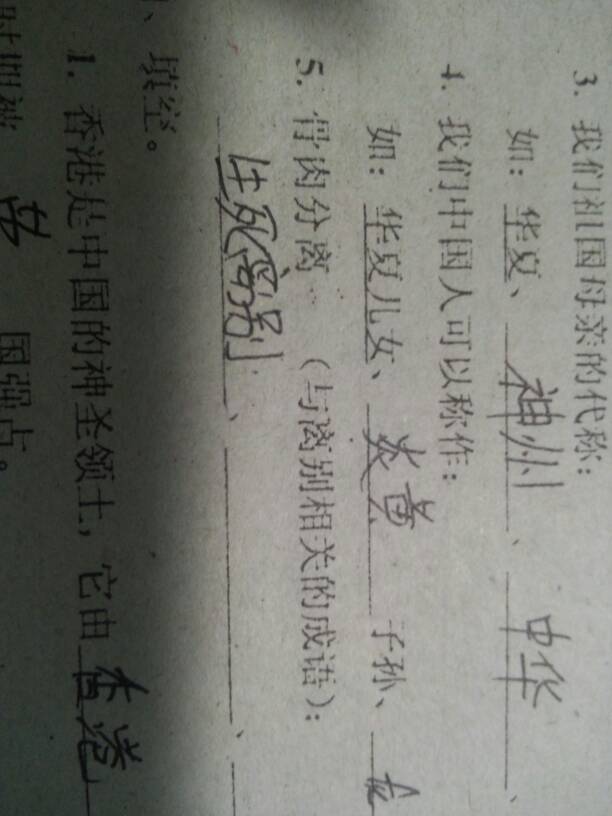 3. 我们祖国母亲的代称：
如：华夏、神州、中华、
4. 我们中国人可以称作：
如：华夏儿女、炎黄子孙、
5. 骨肉分离 （与离别相关的成语）：
生死离别、、
、填空。
1. 香港是中国的神圣领土，它由香港
国强占。